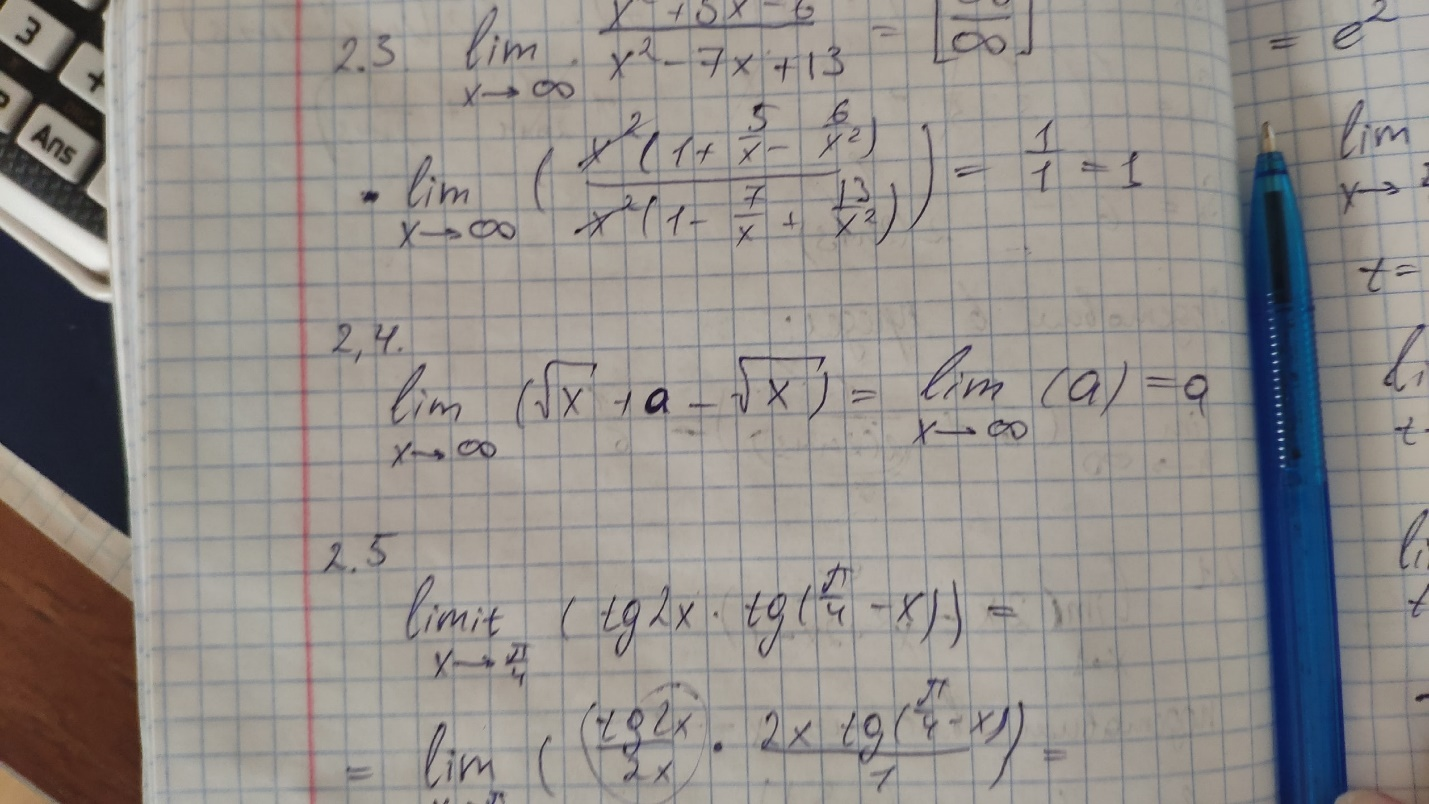 3
+
Ans
2.3 lim x→∞ (x² + 5x - 6)/(x² - 7x + 13) = [∞/∞]
lim x→∞ ( x²(1 + 5/x - 6/x²) / x²(1 - 7/x + 13/x²) ) = 1/1 = 1
2,4.
lim x→∞ (√x + a - √x) = lim x→∞ (a) = a
2.5
limit x→π/4 ( tg2x · tg(π/4 - x) ) =
= lim ( (tg2x/2x) · (2x tg(π/4 - x))/1 ) =
= e²
lim
x→
t =